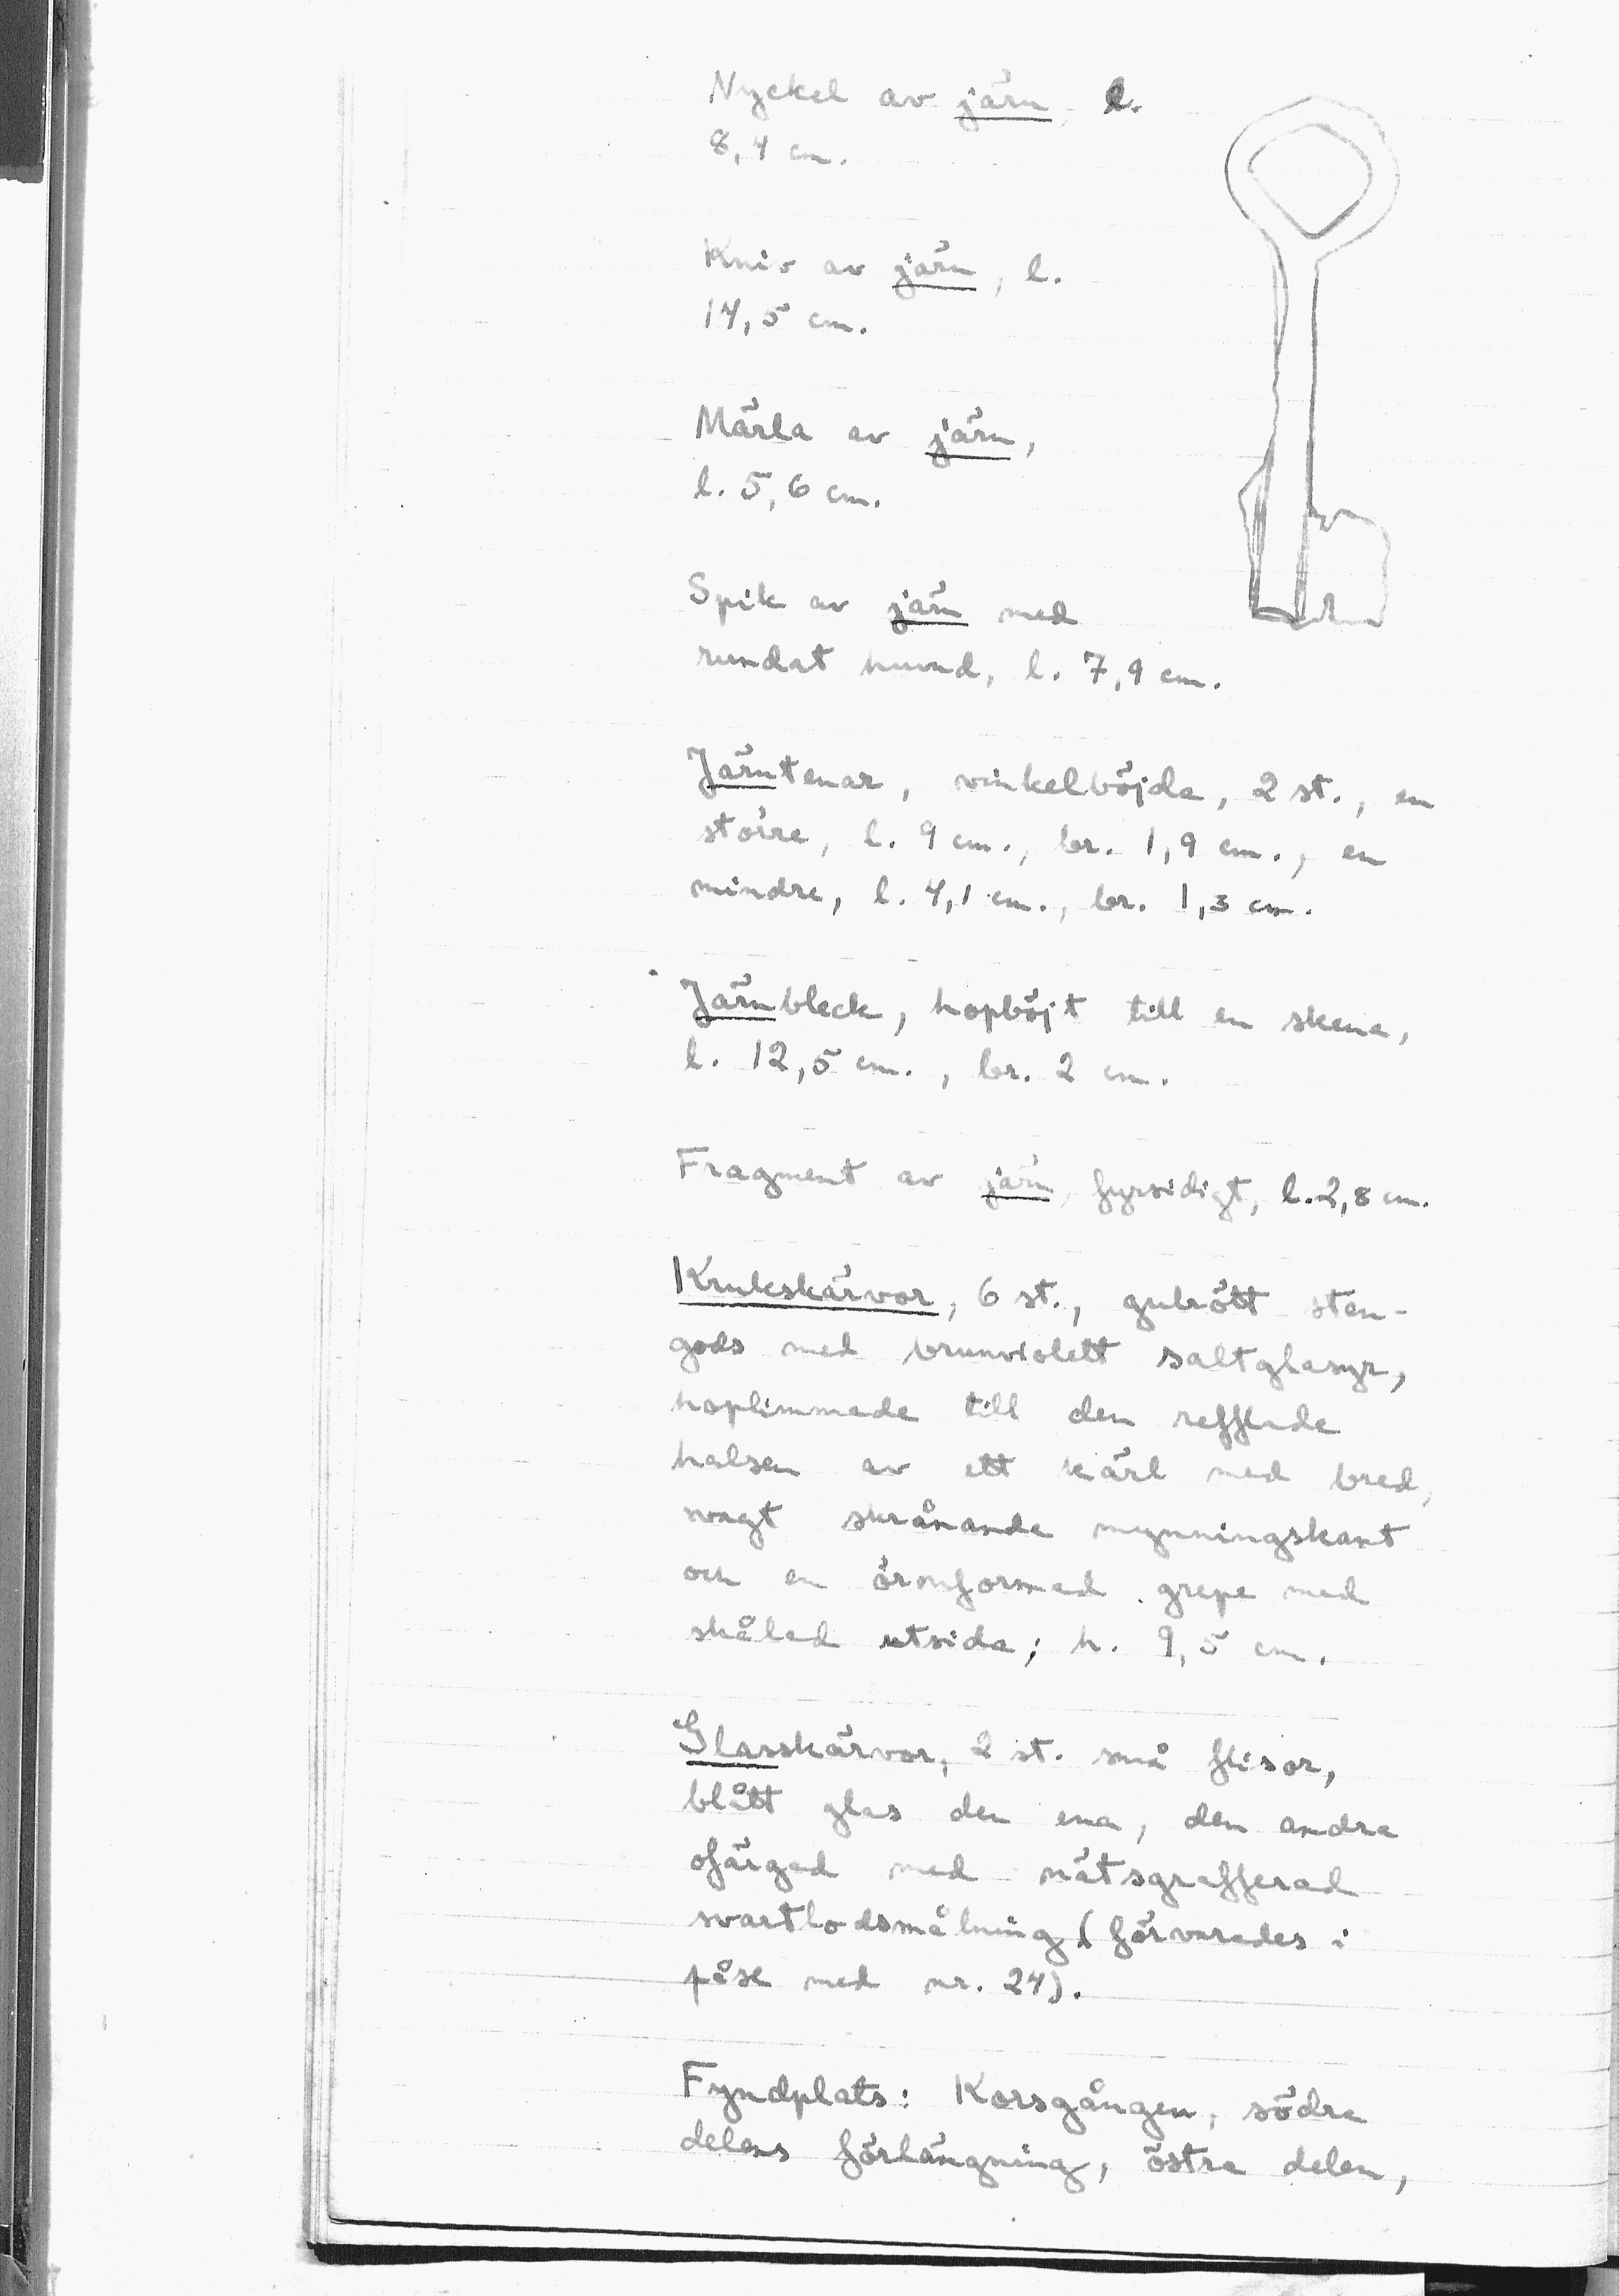 Nyckel av järn, l.
8,4 cm.
Kniv av järn, l.
14,5 cm.
Märla av järn,
l. 5,6 cm.
Spik av järn med
rundat huvud, l. 7,9 cm.
Järntenar, vinkelböjda, 2 st., en
större, l. 9 cm., br. 1,9 cm., en
mindre, l. 4,1 cm., br. 1,3 cm.
Järnbleck, hopböjt till en skena,
l. 12,5 cm., br. 2 cm.
Fragment av järn, fyrsidigt, l. 2,8 cm.
Krukskärvor, 6 st., gulrött sten-
gods med brunviolett saltglasyr,
hoplimmade till den refflade
halsen av ett kärl med bred,
svagt skrånande mynningskant
och en öronformad grepe med
skålad utsida; h. 9,5 cm.
Glasskärvor, 2 st. små flisor,
blått glas den ena, den andra
ofärgad med nätsgrafferad
svartlodsmålning (förvarades i
påse med nr. 24).
Fyndplats: Korsgången, södra
delens förlängning, östra delen,